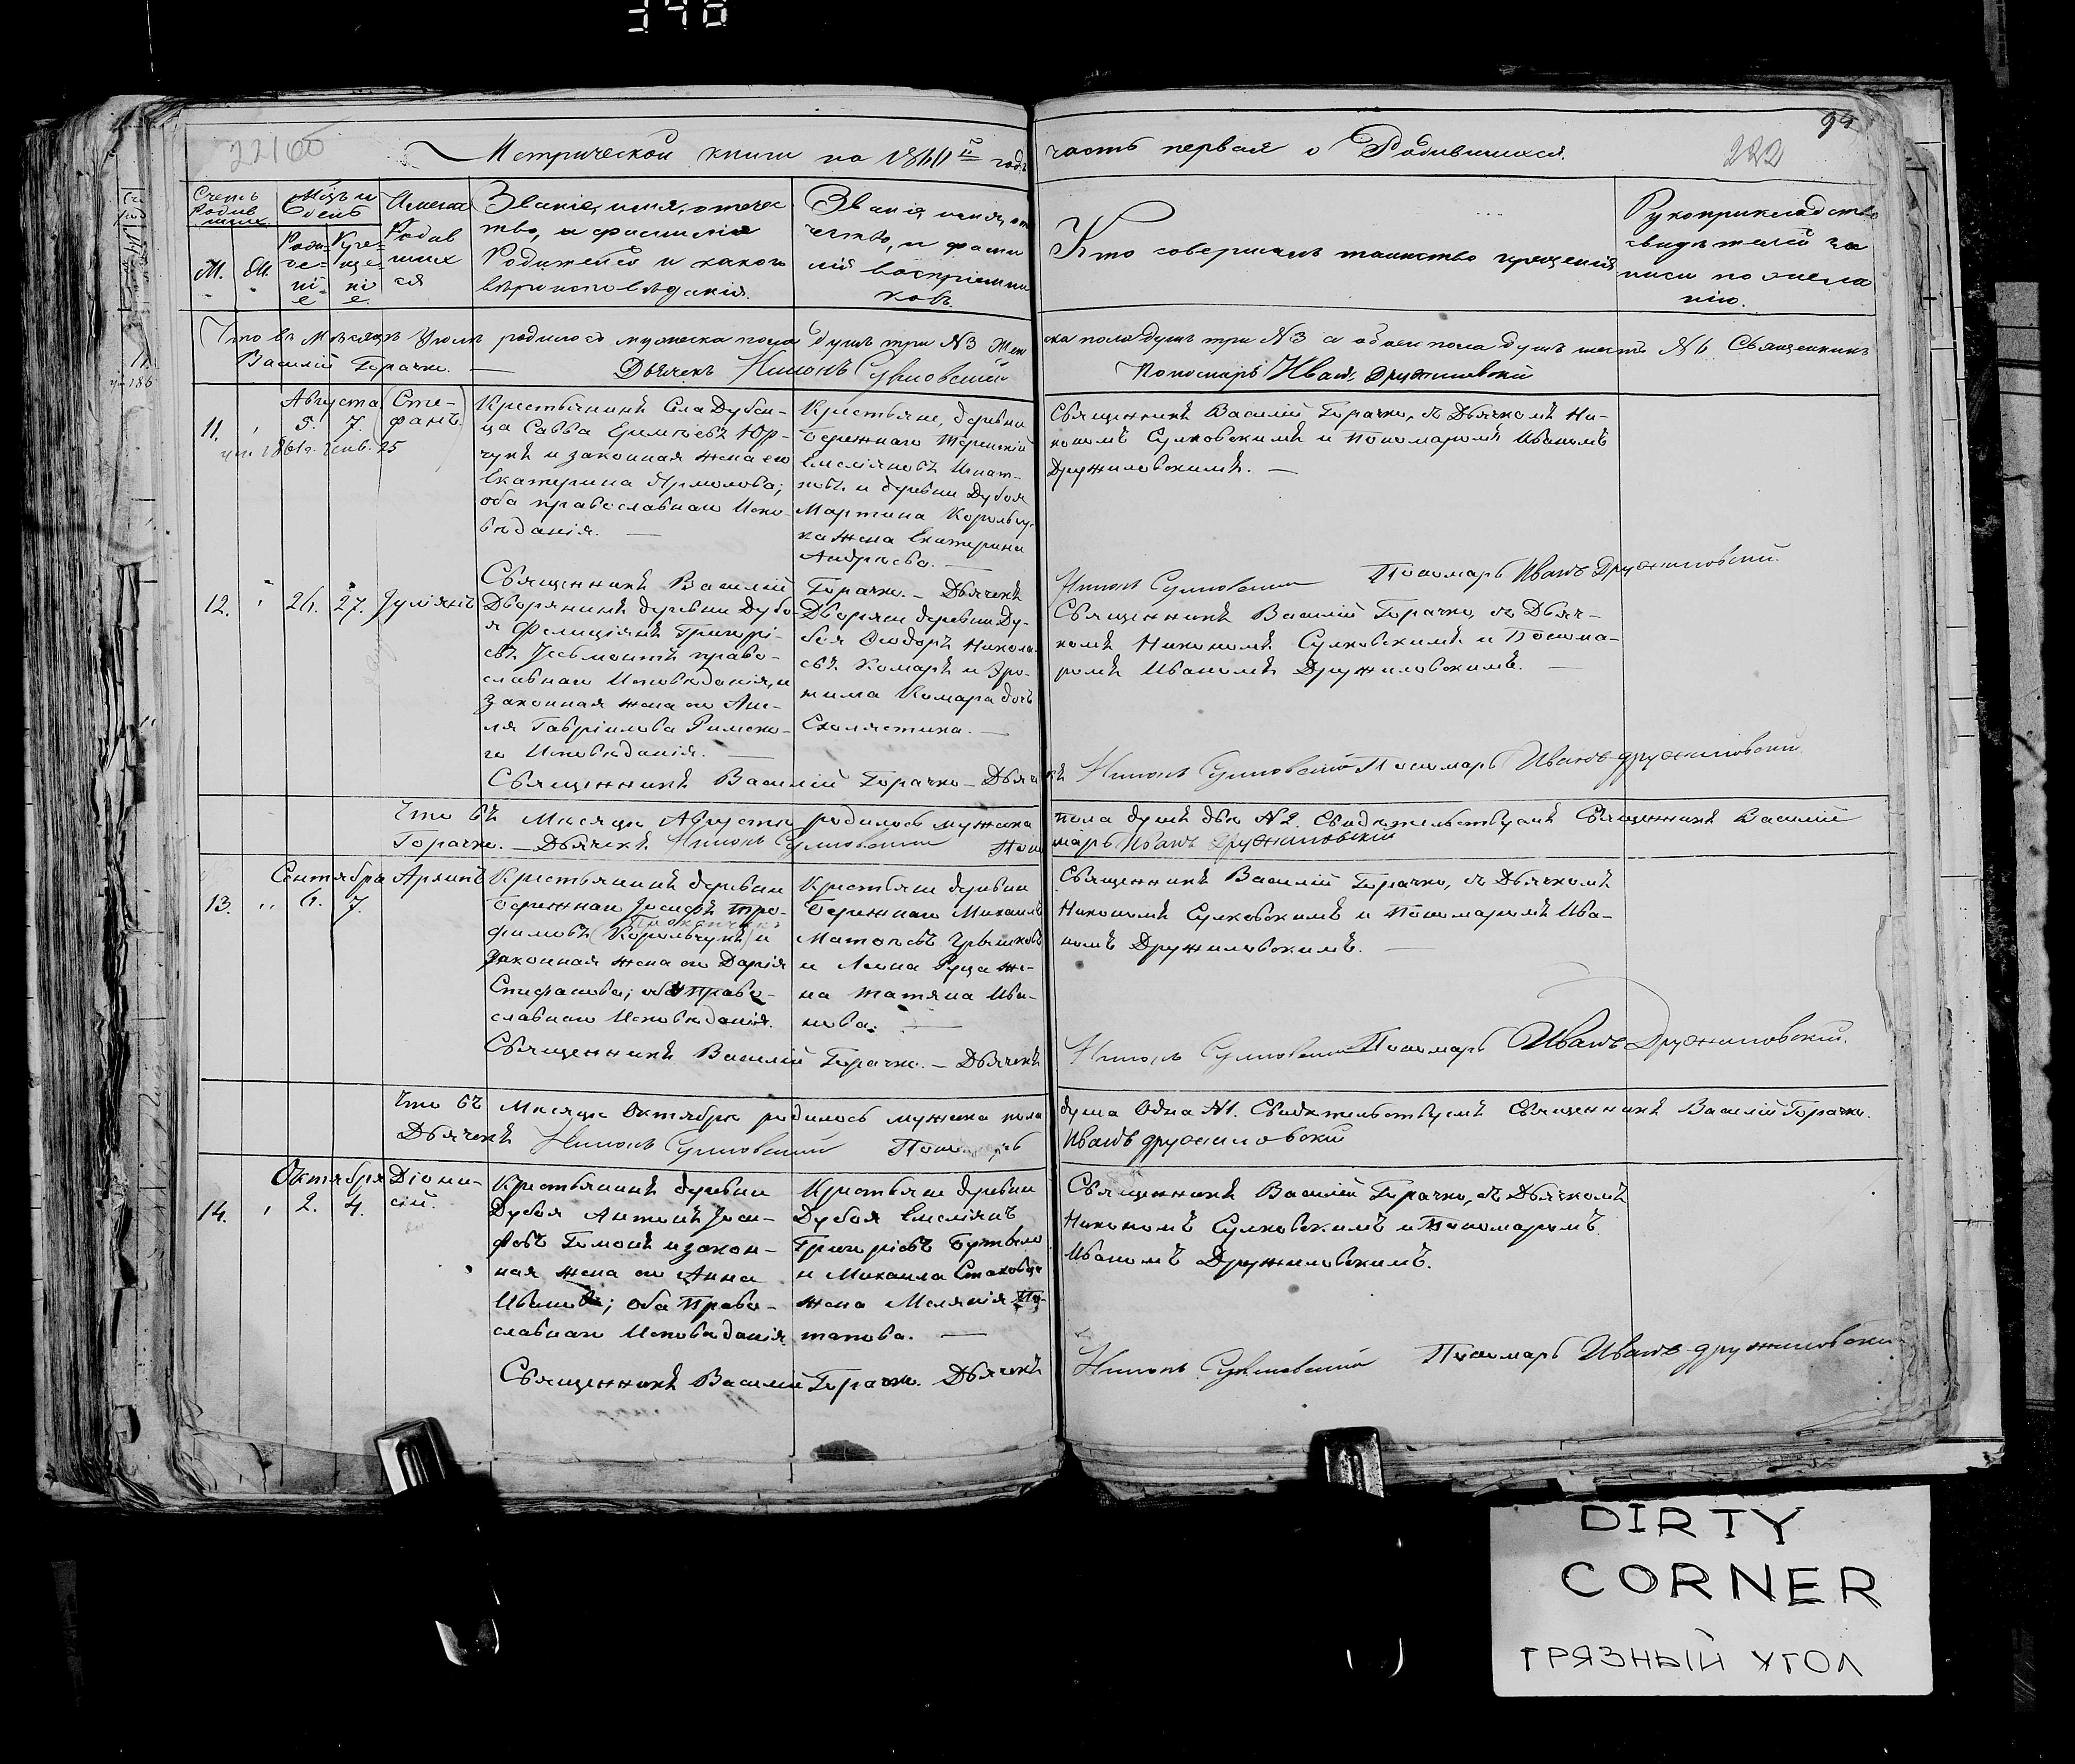 348
94
222
Метрической книги на 1860й годъ часть первая о Родившихся.
Счетъ Родившихся
М. Ж.
Мѣсяцъ и день
Рождение Крещение
Имена Родившихся
Званіе, имя, отечество, и фамилія Родителей и какого вѣроисповѣданія.
Званіе, имя, отчество, и фамилій воспріемниковъ.
Кто совершалъ таинство крещенія
Рукоприкладство свидѣтелей записи по желанію.
Что въ Мѣсяцѣ Іюлѣ родилось мужеска пола душъ три №3 женска пола душъ три №3 а обоего пола душъ шесть №6 Священникъ
Василій Горачко. — Дьячекъ Никонъ Сулковский Пономаръ Иванъ Дружиловский
11.
Августа
5. 7.
Стефанъ
Крестьянинъ Села Дубенца
Савва Еремѣевъ Юрчукъ
и законная жена его
Екатерина Ярмолова;
оба православнаго Исповѣданія. —
Крестьяне, деревни
Бережнаго
и деревни Дубоя
Мартина Корольчука
жена Екатерина
Андреева.
Священникъ Василій Горачко, съ Дьячкомъ Никономъ
Сулковскимъ и Пономаромъ Иваномъ
Дружиловскимъ. —
Священникъ Василій Горачко. — Дьячекъ Никонъ Сулковский Пономарь Иванъ Дружиловский
12. 26. 27. Іуліянъ
Дворянинъ деревни Дубоя
Фелиціянъ Григоріевъ
православнаго Исповѣданія, и
законная жена его
Гавріилова Римского
Исповѣданія.
Дворяне деревни Дубоя
Ѳеодоръ Николаевъ
Комаръ и
Комара дочь
Схолястика. —
Священникъ Василій Горачко, съ Дьячкомъ
Никономъ Сулковскимъ и Пономаромъ
Иваномъ Дружиловскимъ. —
Священникъ Василій Горачко — Дьячекъ Никонъ Сулковский Пономарь Иванъ Дружиловский
Что въ Месяце Августе родилось мужска пола душъ двѣ №2. Свидѣтельствуемъ Священникъ Василій
Горачко. — Дьячекъ Никонъ Сулковский Пономарь Иванъ Дружиловский
13.
Сентября
6. 7.
Архипъ
Крестьянинъ деревни
Бережнаго Іосифъ Трофимовъ
(Корольчукъ) и
законная жена его Дарія
Стефанова; оба Православнаго
Исповѣданія.
Крестьяне деревни
Бережнаго Михаилъ
Матѳеевъ
и жена
Татяна Иванова. —
Священникъ Василій Горачко, съ Дьячкомъ
Никономъ Сулковскимъ и Пономаромъ Иваномъ
Дружиловскимъ. —
Священникъ Василій Горачко. — Дьячекъ Никонъ Сулковский Пономарь Иванъ Дружиловский.
Что въ Месяце Октябре родилось мужска пола душа Одна №1. Свидетельствуемъ Священникъ Василій Горачко.
Дьячекъ Никонъ Сулковский Пономарь Иванъ Дружиловский
14.
Октября
2. 4.
Діонисій.
Крестьянинъ деревни
Дубоя Антонъ Іосифовъ
и законная
жена его Анна
Иванова; оба Православнаго
Исповѣданія
Крестьяне деревни
Дубоя Емеліянъ
Григоріевъ
и Михаила
жена Меланія
Священникъ Василій Горачко, съ Дьячкомъ
Никономъ Сулковскимъ и Пономаромъ
Иваномъ Дружиловскимъ.
Священникъ Василій Горачко. Дьячекъ Никонъ Сулковский Пономарь Иванъ Дружиловский
DIRTY
CORNER
ГРЯЗНЫЙ УГОЛ